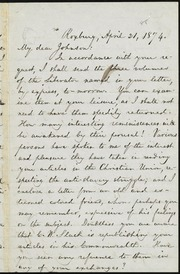 Roxbury, April 21, 1874.
My dear Johnson:
In accordance with your re-
quest, I shall send the three volumes
of the Liberator named in your letter,
by express, to-morrow. You can exam-
ine them at your leisure, as I shall not
need to have them speedily returned.
How many interesting reminiscences will
be awakened by their perusal! Various
persons have spoken to me of the interest
and pleasure they have taken in reading
your articles in the Christian Union, re-
specting the anti-slavery struggle; and
I enclose a letter from an old and es-
teemed colored friend, whom perhaps
you may remember, expressive of his feelings
on the subject. Doubtless you are aware
that C. W. Slack is republishing your
articles in his Commonwealth. Have
you seen any reference to them in
any of your exchanges?